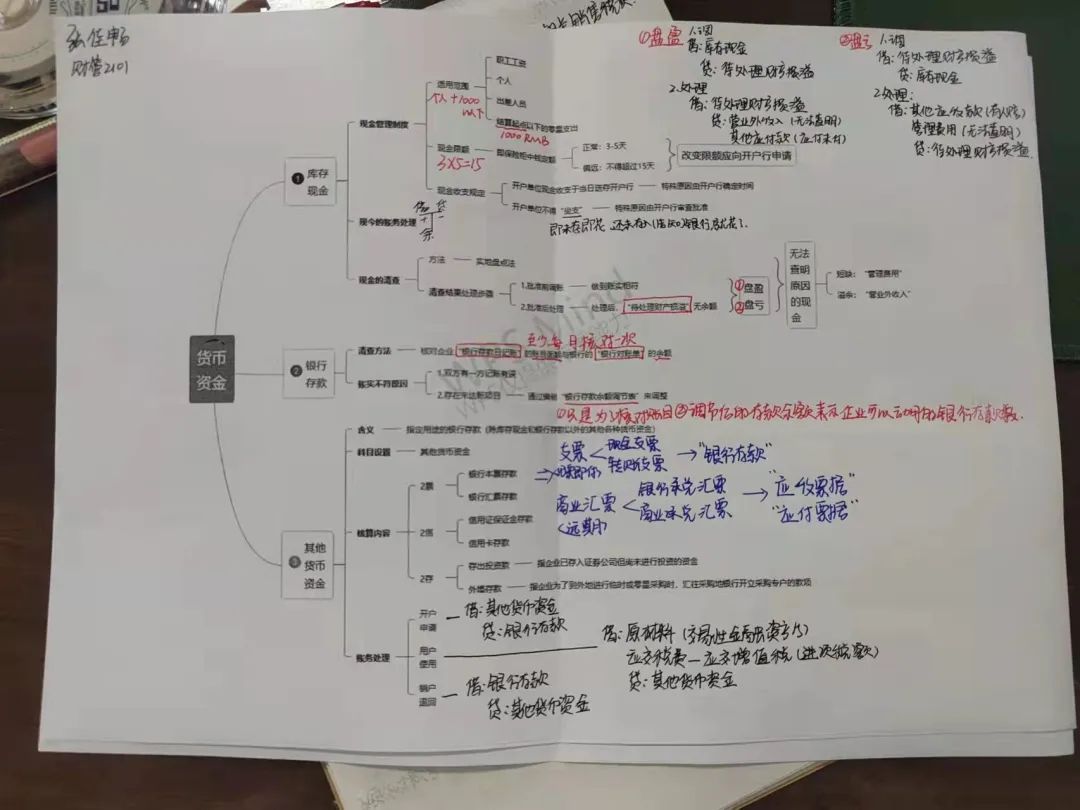 张佳畅
财管2101
货币资金
1 库存现金
现金管理制度
适用范围
个人+1000以下
职工工资
个人
出差人员
结算起点以下的零星支出
1000 RMB
现金限额
3×5=15
即保险柜中钱定额
正常：3-5天
偏远：不得超过15天
改变限额应向开户行申请
现金收支规定
开户单位现金收支于当日送存开户行
特殊原因由开户行确定时间
开户单位不得“坐支”
特殊原因由开户行审查批准
即未存即花
现今的账务处理
借 贷
+ -
余
现金的清查
方法
实地盘点法
清查结果处理步骤
1.批准前调账
做到账实相符
2.批准后处理
处理后，“待处理财产损溢”无余额
①盘盈
②盘亏
无法查明原因的现金
短缺：“管理费用”
溢余：“营业外收入”
①盘盈
1.调
借：库存现金
贷：待处理财产损溢
2.处理
借：待处理财产损溢
贷：营业外收入（无法查明）
其他应付款（应付未付）
②盘亏
1.调
借：待处理财产损溢
贷：库存现金
2.处理：
借：其他应收款（有人赔）
管理费用（无法查明）
贷：待处理财产损溢
2 银行存款
清查方法
核对企业“银行存款日记账”的账目余额与银行的“银行对账单”的余额
至少每月核对一次
账实不符原因
1.双方有一方记账有误
2.存在未达账项目
通过编制“银行存款余额调节表”来调整
①只是为了核对账目②调节后的存款余额表示企业可以动用的银行存款数.
3 其他货币资金
含义
指定用途的银行存款（除库存现金和银行存款以外的其他各种货币资金）
科目设置
其他货币资金
核算内容
2票
银行本票存款
银行汇票存款
2信
信用证保证金存款
信用卡存款
2存
存出投资款
指企业已存入证券公司但尚未进行投资的资金
外埠存款
指企业为了到外地进行临时或零星采购时，汇往采购地银行开立采购专户的款项
支票
现金支票
转账支票
→“银行存款”
商业汇票
<远期>
银行承兑汇票
商业承兑汇票
→“应收票据”
“应付票据”
账务处理
开户申请
借：其他货币资金
贷：银行存款
用户使用
借：原材料（交易性金融资产）
应交税费—应交增值税（进项税额）
贷：其他货币资金
销户退回
借：银行存款
贷：其他货币资金